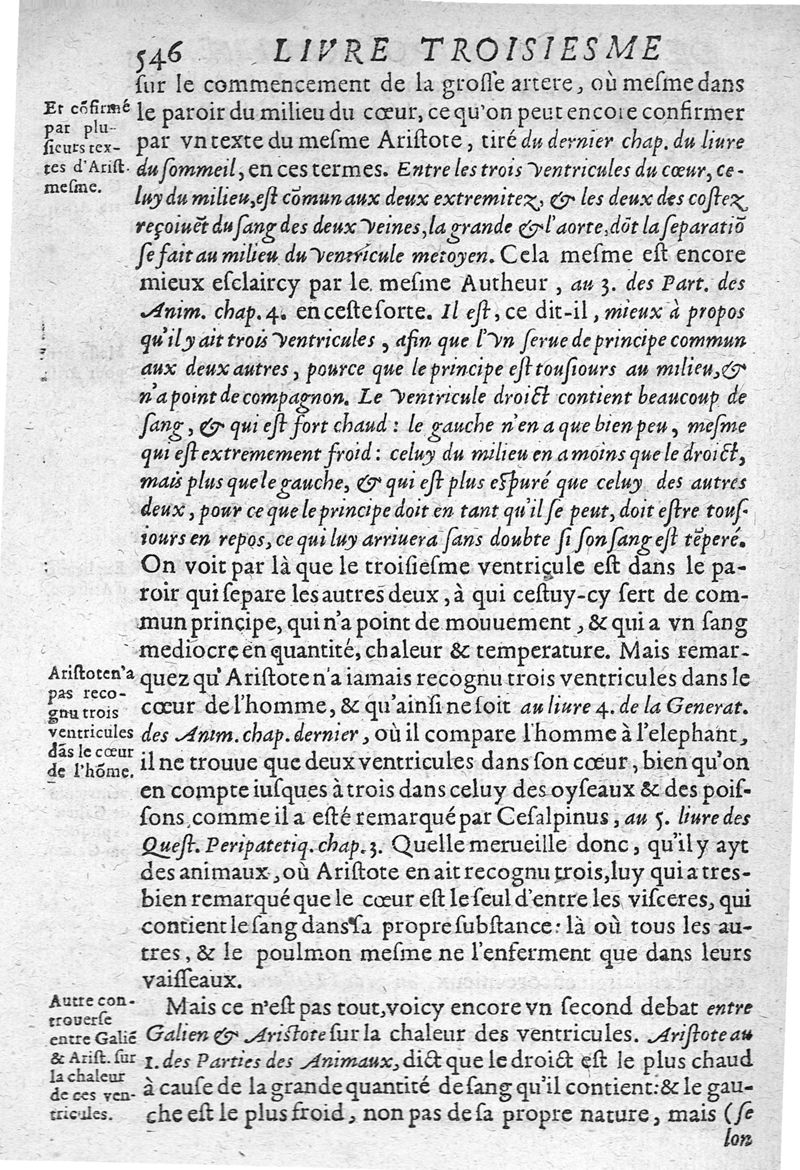 546 LIVRE TROISIESME
ſur le commencement de la groſſe artere, où meſme dans
Et cõfirmé
par plu-
ſieurs tex-
tes d'Ariſt.
meſme.
le paroir du milieu du cœur, ce qu'on peut encore confirmer
par vn texte du meſme Ariſtote, tiré du dernier chap. du liure
du ſommeil, en ces termes. Entre les trois ventricules du cœur, ce-
luy du milieu, eſt cõmun aux deux extremitez, & les deux des coſtez
reçoiuẽt du ſang des deux veines, la grande & l'aorte, dõt la ſeparatiõ
ſe fait au milieu du ventricule metoyen. Cela meſme eſt encore
mieux eſclaircy par le meſme Autheur, au 3. des Part. des
Anim. chap. 4. en ceſte ſorte. Il eſt, ce dit-il, mieux à propos
qu'il y ait trois ventricules, afin que l'vn ſerue de principe commun
aux deux autres, pource que le principe eſt touſiours au milieu, &
n'a point de compagnon. Le ventricule droict contient beaucoup de
ſang, & qui eſt fort chaud : le gauche n'en a que bien peu, meſme
qui eſt extremement froid : celuy du milieu en a moins que le droict,
mais plus que le gauche, & qui eſt plus eſpuré que celuy des autres
deux, pour ce que le principe doit en tant qu'il ſe peut, doit eſtre touſ-
iours en repos, ce qui luy arriuera ſans doubte ſi ſon ſang eſt tẽperé.
On voit par là que le troiſieſme ventricule eſt dans le pa-
roir qui ſepare les autres deux, à qui ceſtuy-cy ſert de com-
mun principe, qui n'a point de mouuement, & qui a vn ſang
mediocre en quantité, chaleur & temperature. Mais remar-
Ariſtote n'a
pas reco-
gnu trois
ventricules
dãs le cœur
de l'hõme.
quez qu'Ariſtote n'a iamais recognu trois ventricules dans le
cœur de l'homme, & qu'ainſi ne ſoit au liure 4. de la Generat.
des Anim. chap. dernier, où il compare l'homme à l'elephant,
il ne trouue que deux ventricules dans ſon cœur, bien qu'on
en compte iuſques à trois dans celuy des oyſeaux & des poiſ-
ſons comme il a eſté remarqué par Ceſalpinus, au 5. liure des
Queſt. Peripatetiq. chap. 3. Quelle merueille donc, qu'il y ayt
des animaux, où Ariſtote en ait recognu trois, luy qui a tres-
bien remarqué que le cœur eſt le ſeul d'entre les viſceres, qui
contient le ſang dans ſa propre ſubſtance : là où tous les au-
tres, & le poulmon meſme ne l'enferment que dans leurs
vaiſſeaux.
Autre con-
trouerſe
entre Galiẽ
& Ariſt. ſur
la chaleur
de ces ven-
tricules.
Mais ce n'eſt pas tout, voicy encore vn ſecond debat entre
Galien & Ariſtote ſur la chaleur des ventricules. Ariſtote au
1. des Parties des Animaux, dict que le droict eſt le plus chaud
à cauſe de la grande quantité de ſang qu'il contient : & le gau-
che eſt le plus froid, non pas de ſa propre nature, mais (ſe
lon